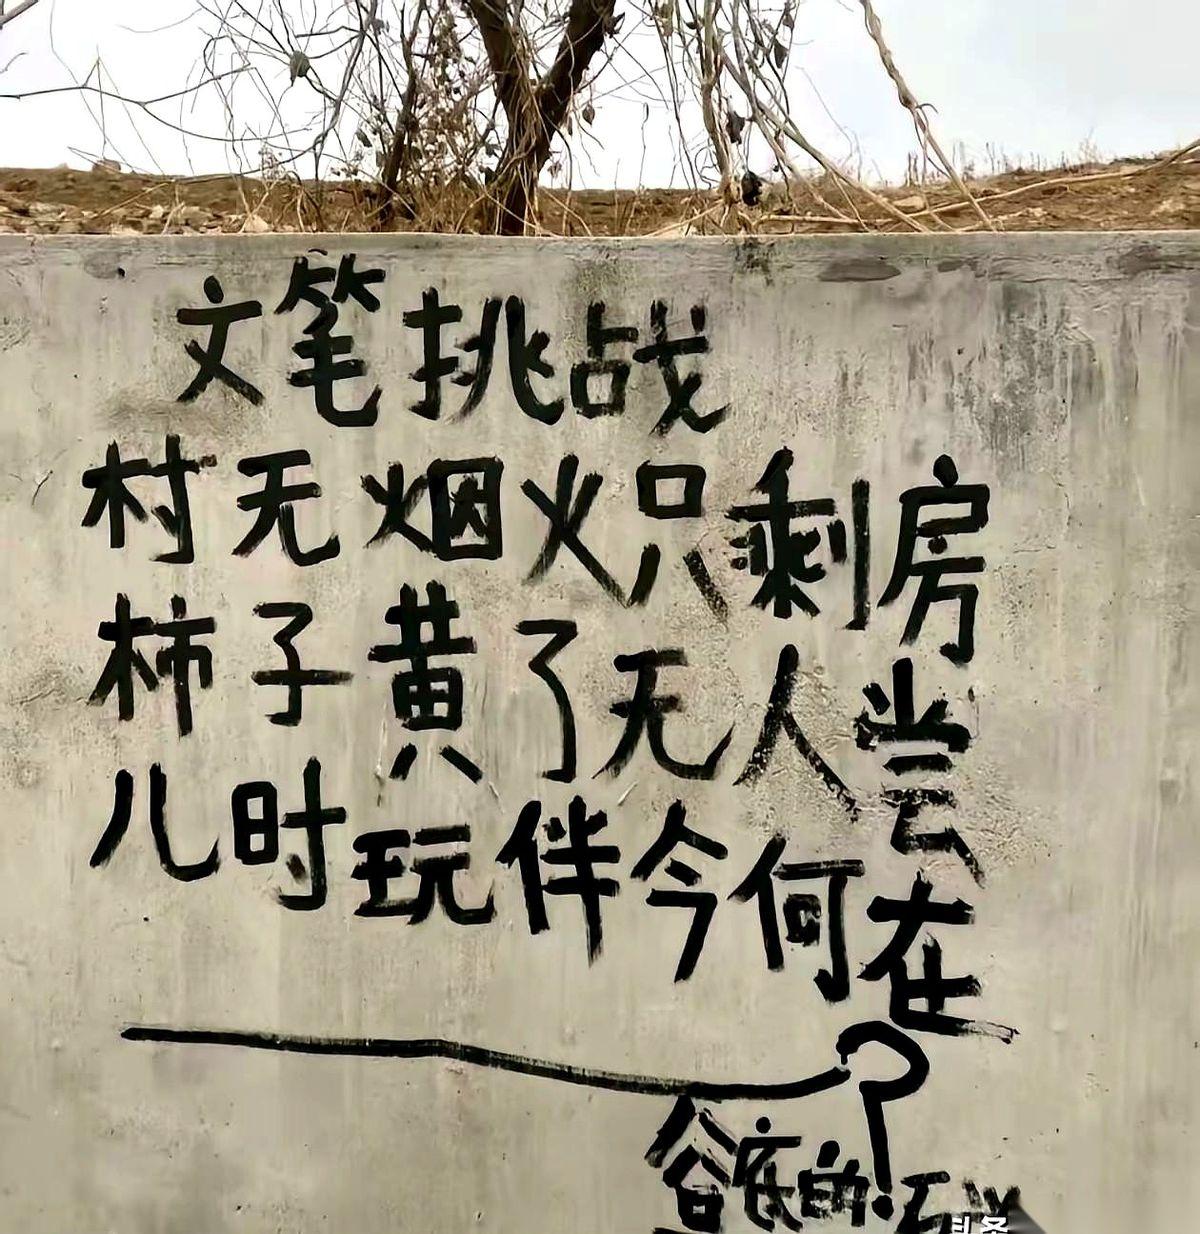 文笔挑战
村无烟火只剩房
柿子黄了无人尝
儿时玩伴今何在
？
谷底的
头条